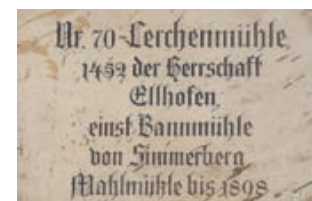 Nr. 70 - Lerchenmühle,
1452 der Herrschaft
Ellhofen,
einst Bannmühle
von Simmerberg
Mahlmühle bis 1898